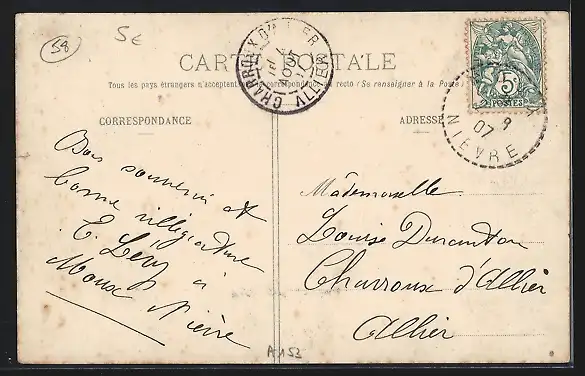 58
5€
CARTE POSTALE
Tous les pays étrangers n'acceptent pas la correspondance au recto (Se renseigner à la Poste)
CORRESPONDANCE
ADRESSE
CHARROUX D'ALLIER
ALLIER
5c
POSTES
07
NIÈVRE
Bon souvenir et
bonne villégiature
E. Lévy à
Moux Nièvre
Mademoiselle
Louise Duranton
Charroux d'Allier
Allier
A153